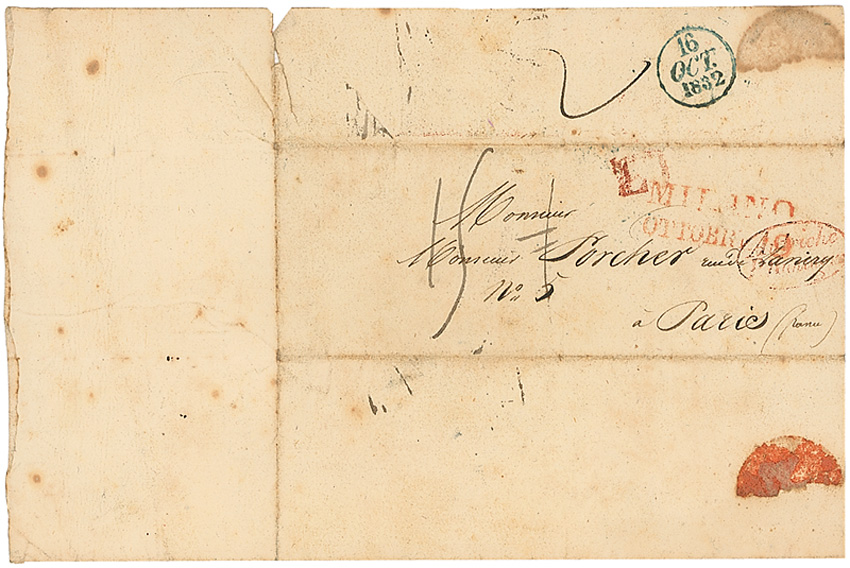 16
OCT.
1832
L
MILANO
OTTOBRE
Monsieur
Monsieur Porcher rue de
No 5
à Paris (France)